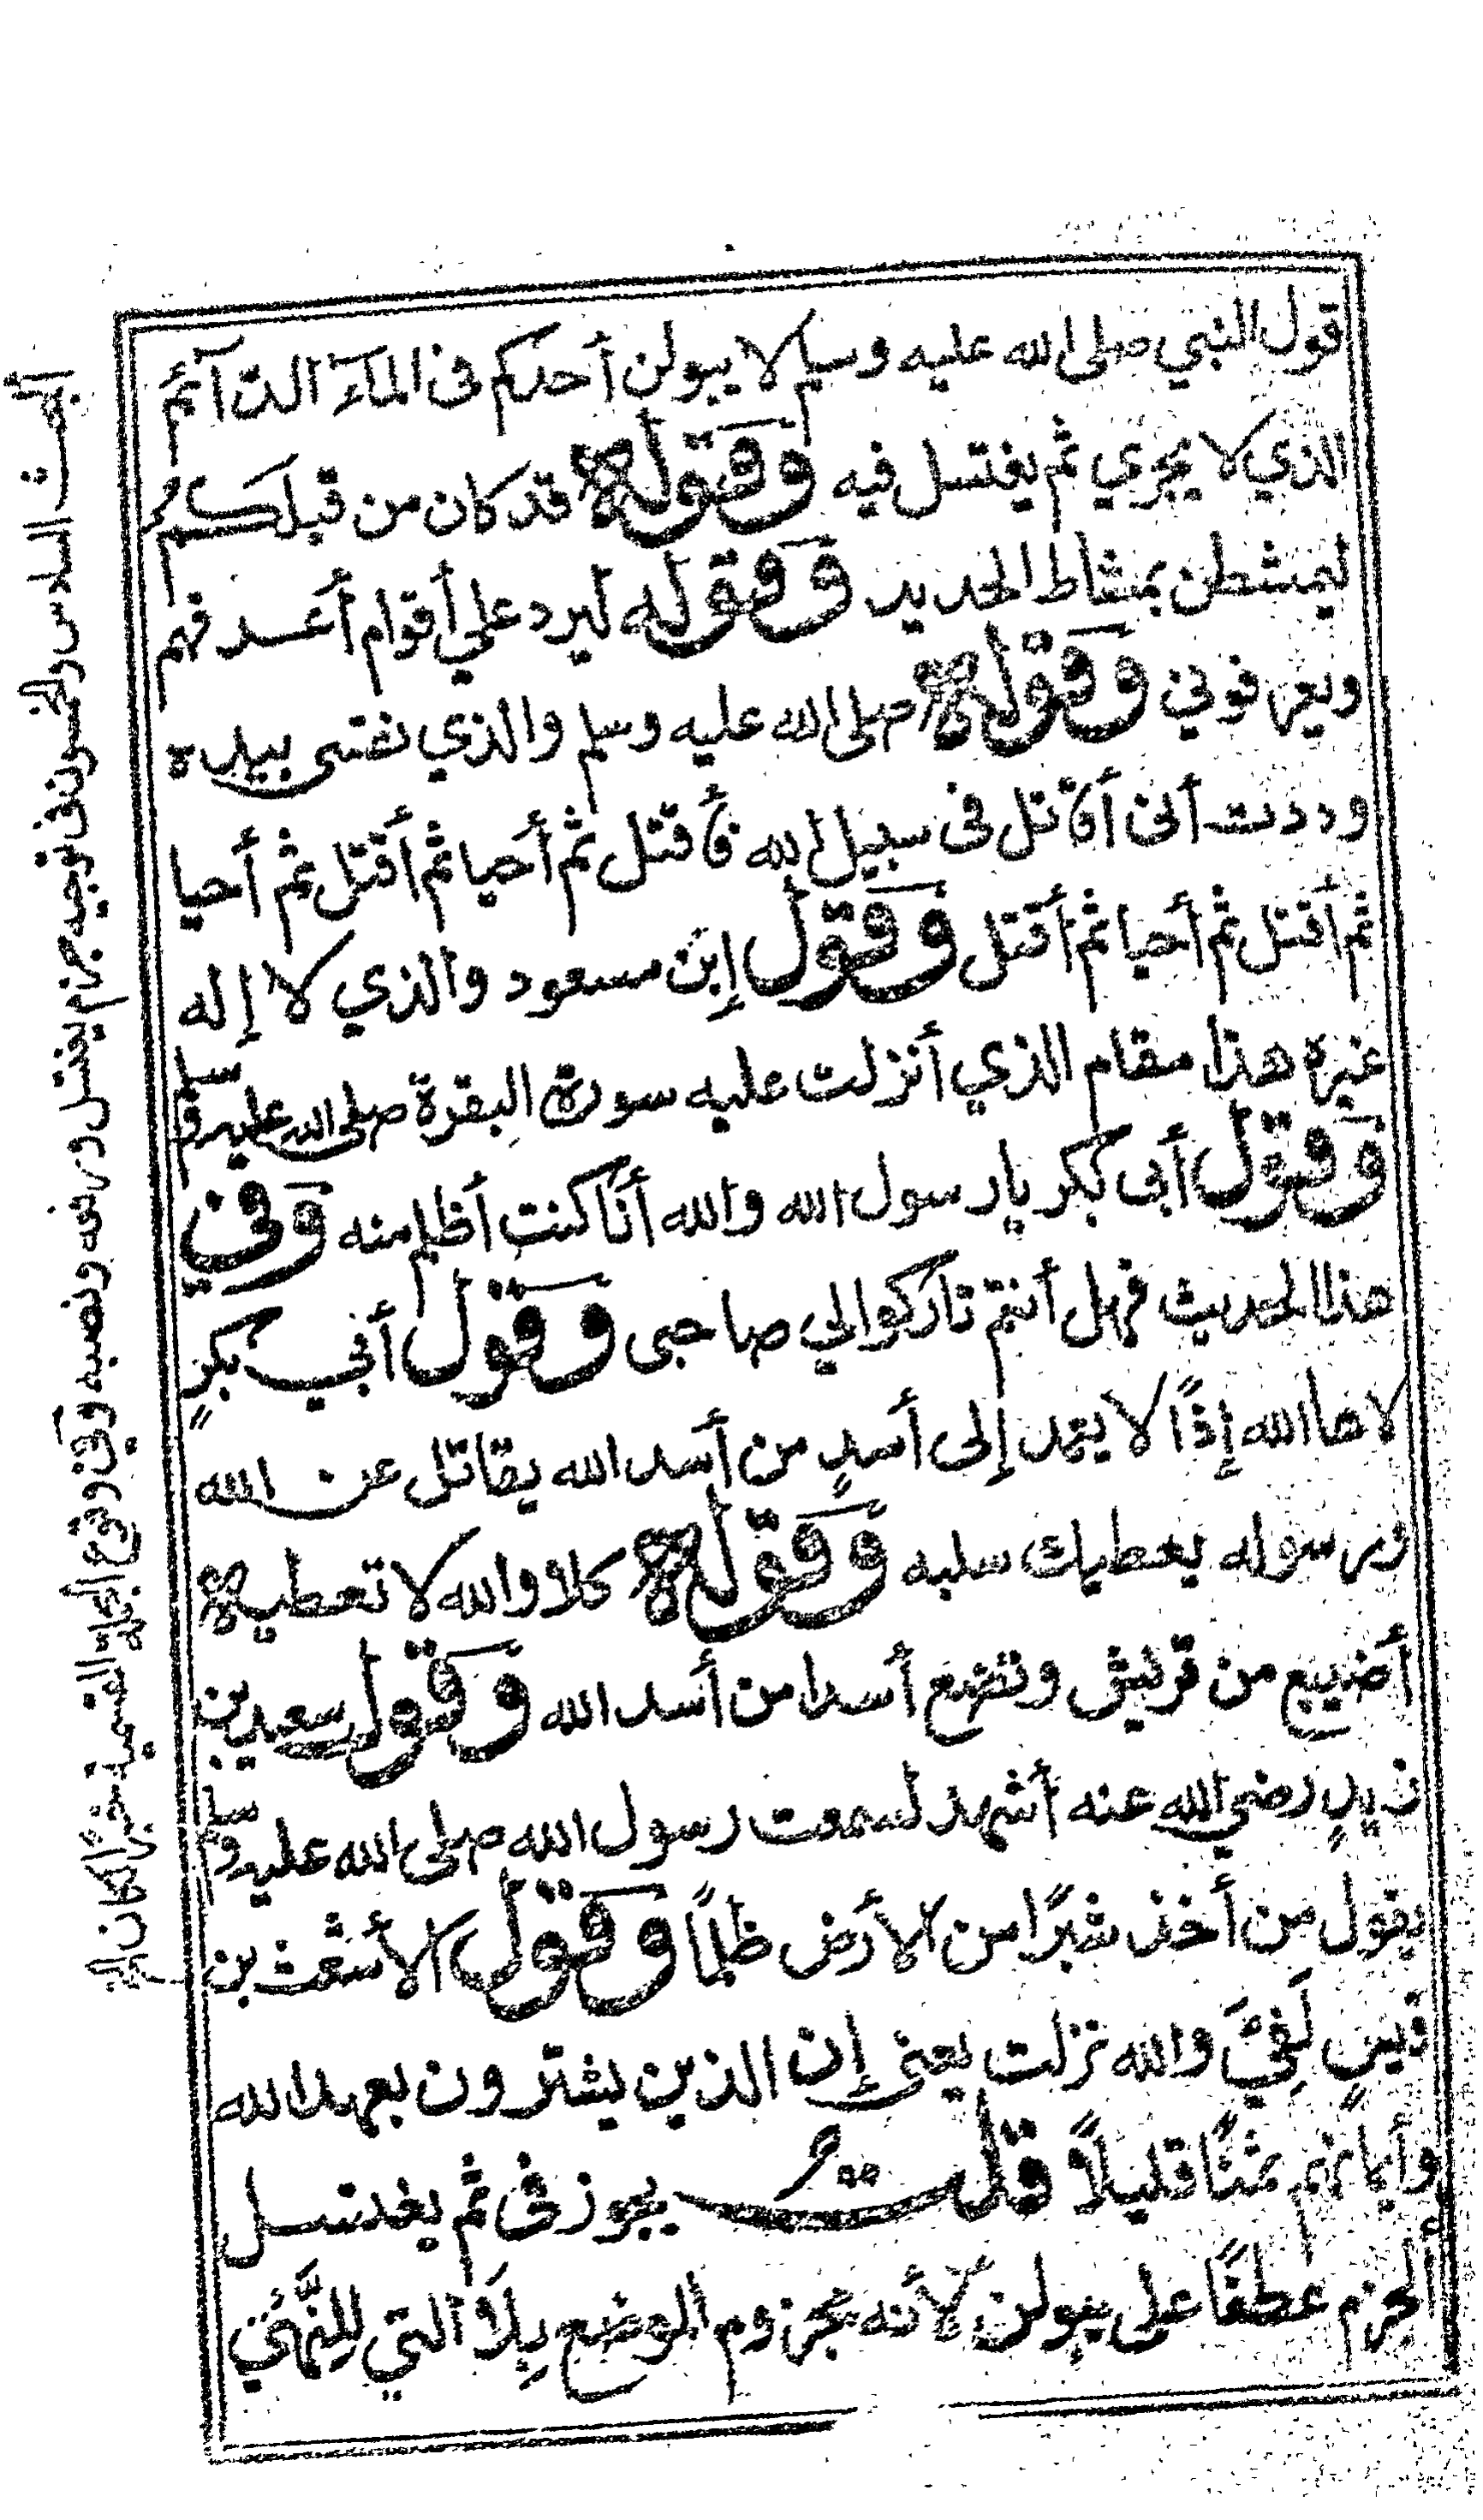 قول النبي صلى الله عليه وسلم لا يبولن أحدكم فى المآء الدآئم
الذي لا يجري ثم يغتسل فيه وقوله قد كان من قبلكم
ليمشطن بمشاط الحديد وقوله ليرد علي أقوام أعرفهم
ويعرفوني وقوله صلى الله عليه وسلم والذي نفسى بيده
وددت أنى أقاتل فى سبيل الله فأقتل ثم أحيا ثم أقتل ثم أحيا
ثم أقتل ثم أحيا ثم أقتل وقول إبن مسعود والذي لا إله
غيره هذا مقام الذي أنزلت عليه سورة البقرة صلى الله عليه وسلم
وقول أبى بكر يا رسول الله والله أنا كنت أظلم منه وفي
هذا الحديث فهل أنتم تاركوا لي صاحبى وقول أبي بكرٍ
لا ها الله إذًا لا يعمد إلى أسدٍ من أسد الله يقاتل عن الله
ورسوله يعطيك سلبه وقوله كلا والله لا تعطيه
أضيبع من قريش وتضع أسدا من أسد الله وقول سعيد بن
زيدٍ رضي الله عنه أشهد لسمعت رسول الله صلى الله عليه وسلم
يقول من أخذ شبرًا من الأرض ظلمًا وقول الأشعث بن
قيسٍ لَفِيَّ والله نزلت يعنى إن الذين يشترون بعهد الله
وأيمانهم ثمنًا قليلًا قلت يجوز فى ثم يغتسل
الجزم عطفًا على يبولن لأنه مجزوم الموضع بِلَا التي للِنَّهْيِ
السادس والخمسون فى توجيه جزم يغتسل ورفعه ونصبه وفى وقوع